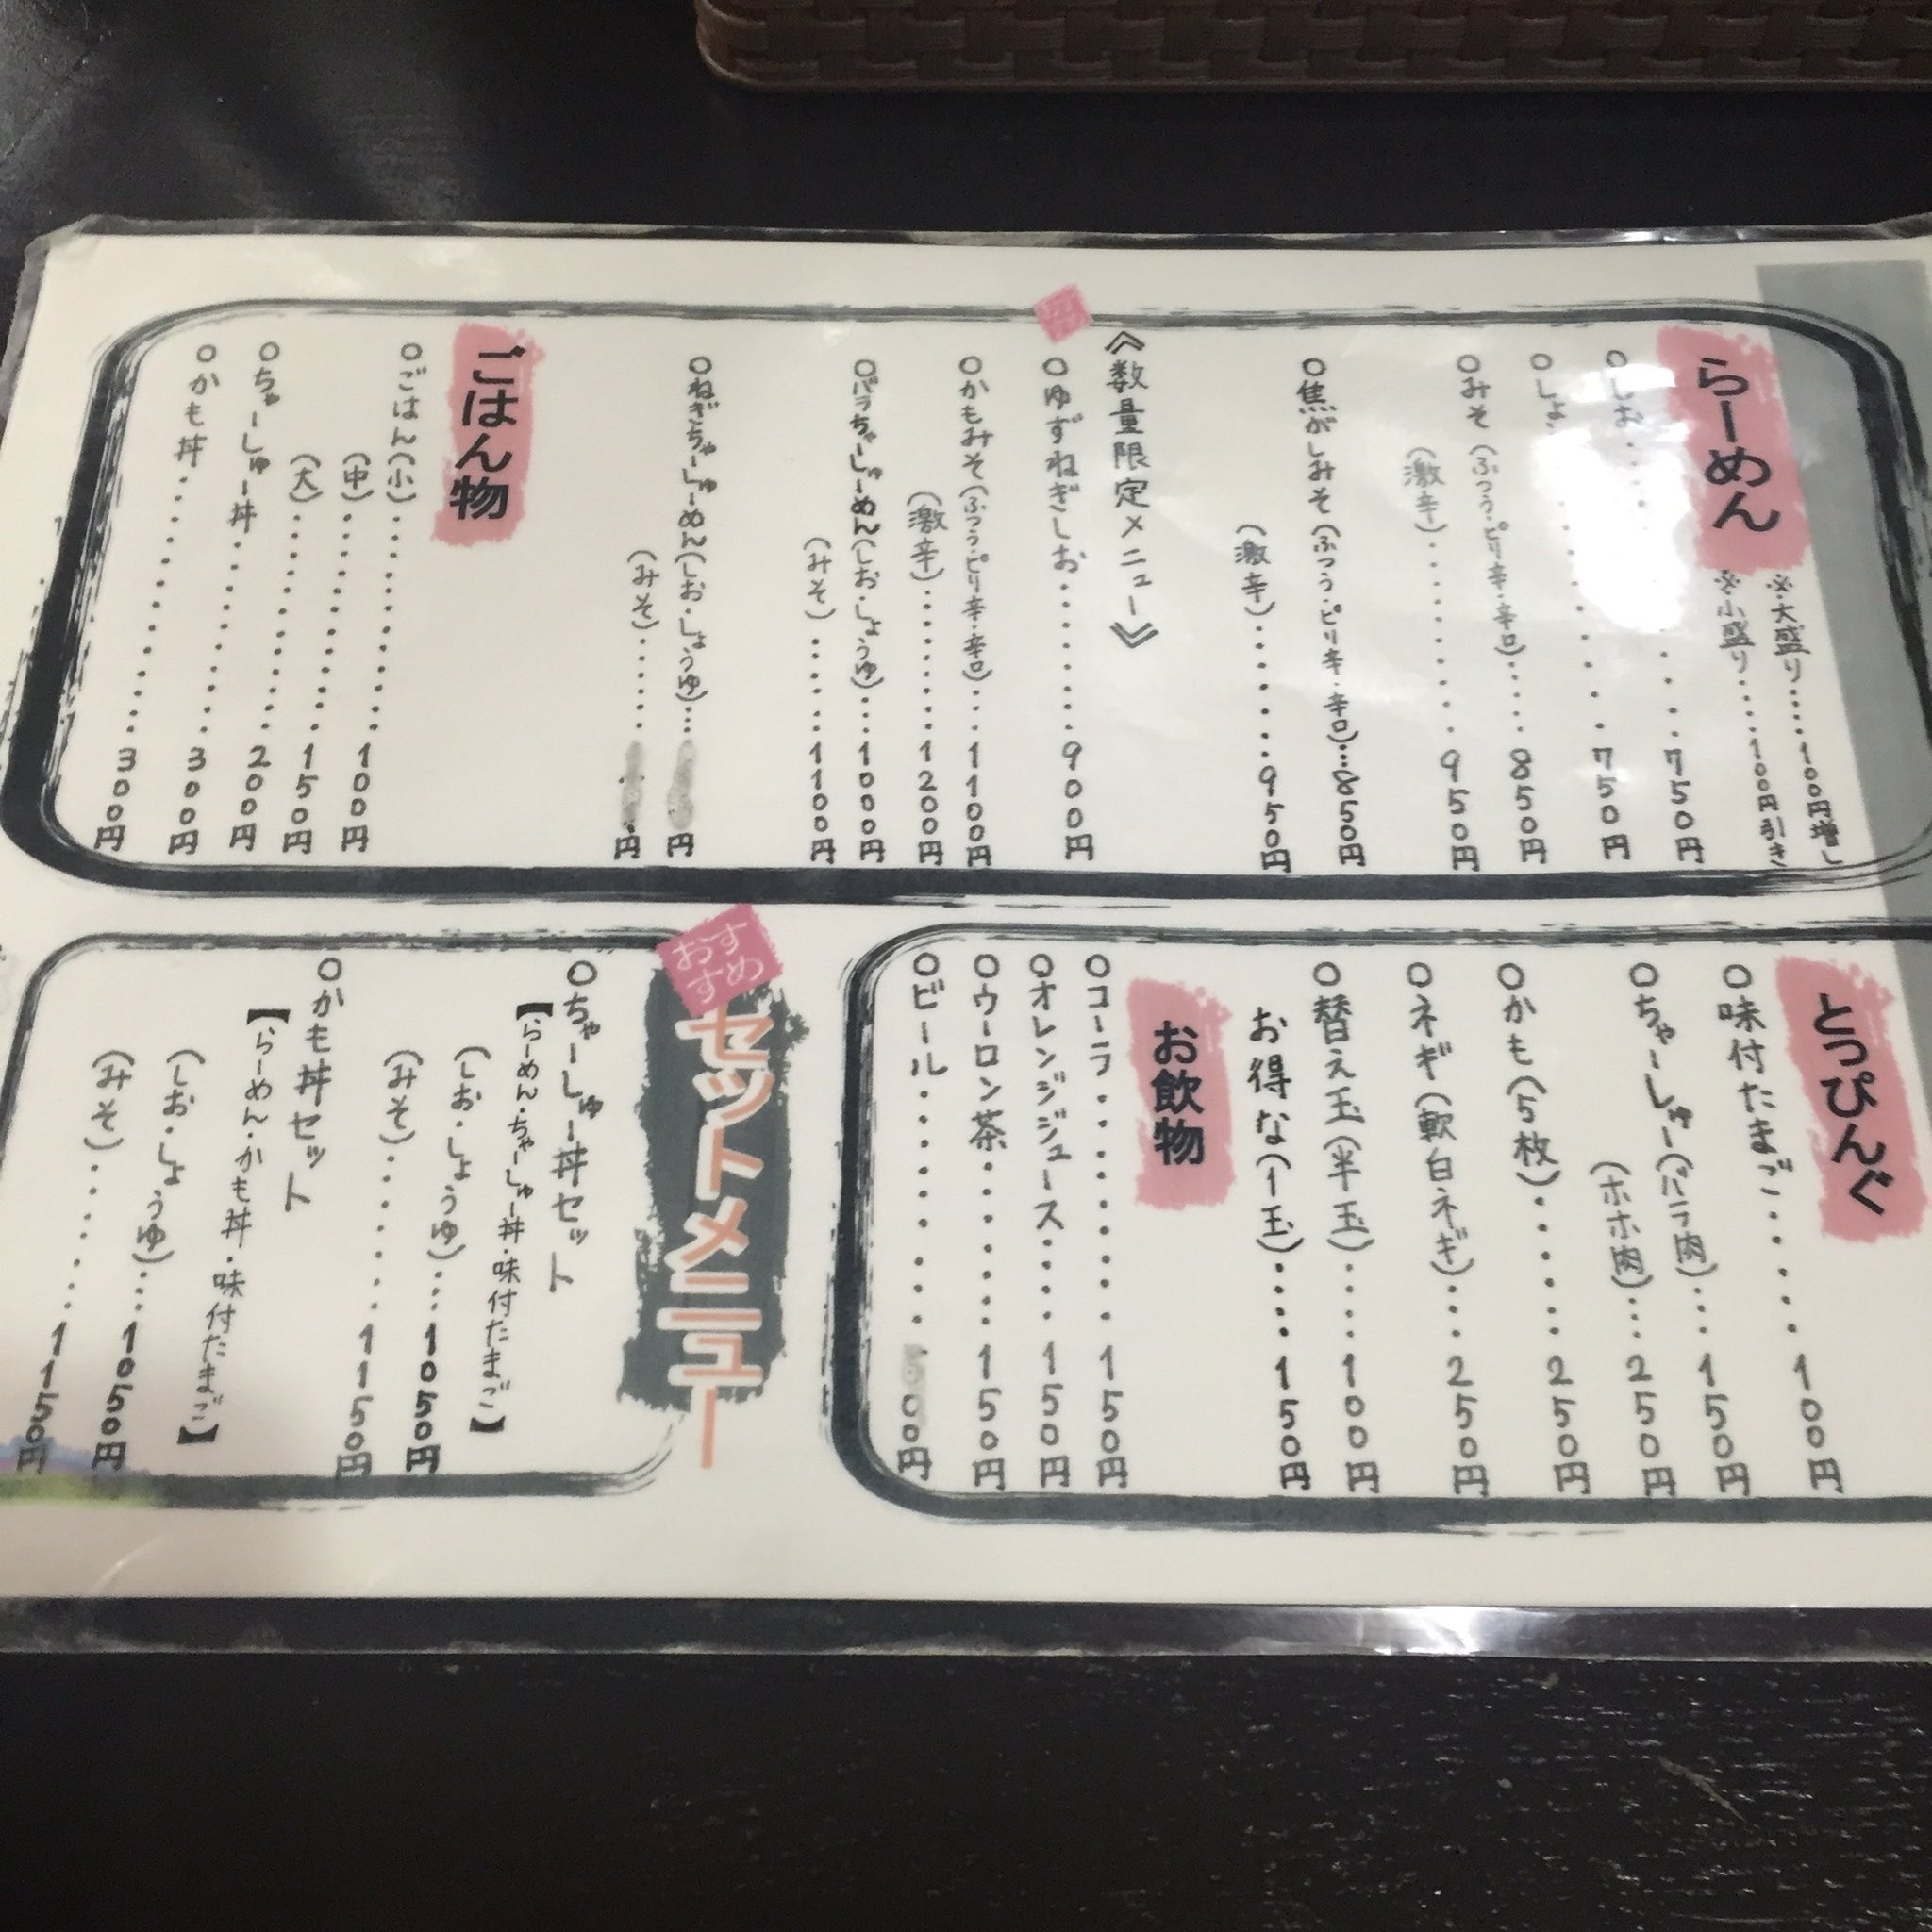 らーめん
※大盛り.....100円増し
※小盛り.....100円引き
○しお.........750円
○しょ.........750円
○みそ(ふつう・ピリ辛・辛口).....850円
(激辛).........950円
○焦がしみそ(ふつう・ピリ辛・辛口)...850円
(激辛)........950円
《数量限定メニュー》
○ゆずねぎしお.........900円
○かもみそ(ふつう・ピリ辛・辛口)...1100円
(激辛).........1200円
○バラちゃーしゅーめん(しお・しょうゆ)...1000円
(みそ)......1100円
○ねぎちゃーしゅーめん(しお・しょうゆ)...円
(みそ)......円
ごはん物
○ごはん(小)............100円
(中)............150円
(大)............200円
○ちゃーしゅー丼..........300円
○かも丼..............300円
とっぴんぐ
○味付たまご......100円
○ちゃーしゅー(バラ肉)...150円
(ホホ肉)...250円
○かも(5枚)......250円
○ネギ(軟白ネギ)...250円
○替え玉(半玉)....100円
お得な(1玉)....150円
お飲物
○コーラ.........150円
○オレンジジュース....150円
○ウーロン茶.......150円
○ビール.........500円
おす
すめ
セットメニュー
○ちゃーしゅー丼セット
【らーめん・ちゃーしゅー丼・味付たまご】
(しお・しょうゆ)...1050円
(みそ).......1150円
○かも丼セット
【らーめん・かも丼・味付たまご】
(しお・しょうゆ)...1050円
(みそ).......1150円